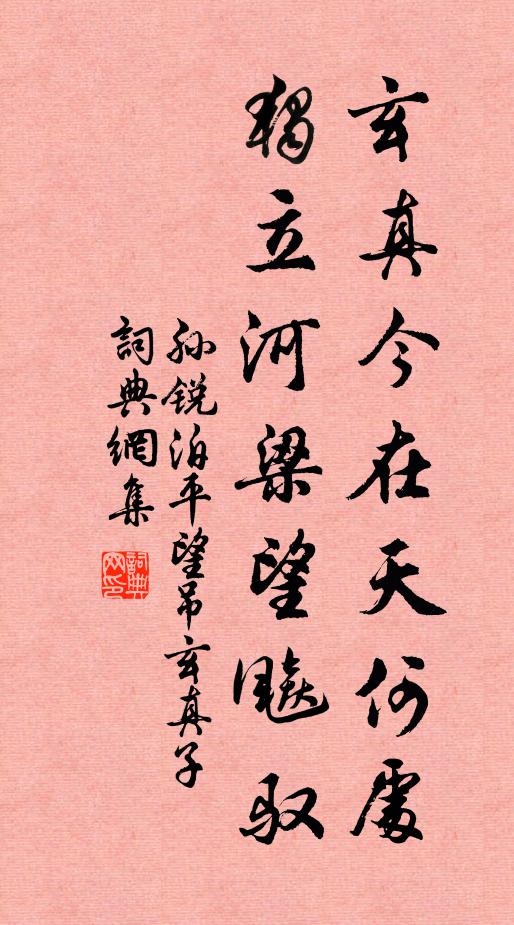 玄真今在天何處
獨立河梁望飈馭
孙銳泊平望吊玄真子
詞典網集
詞典网印